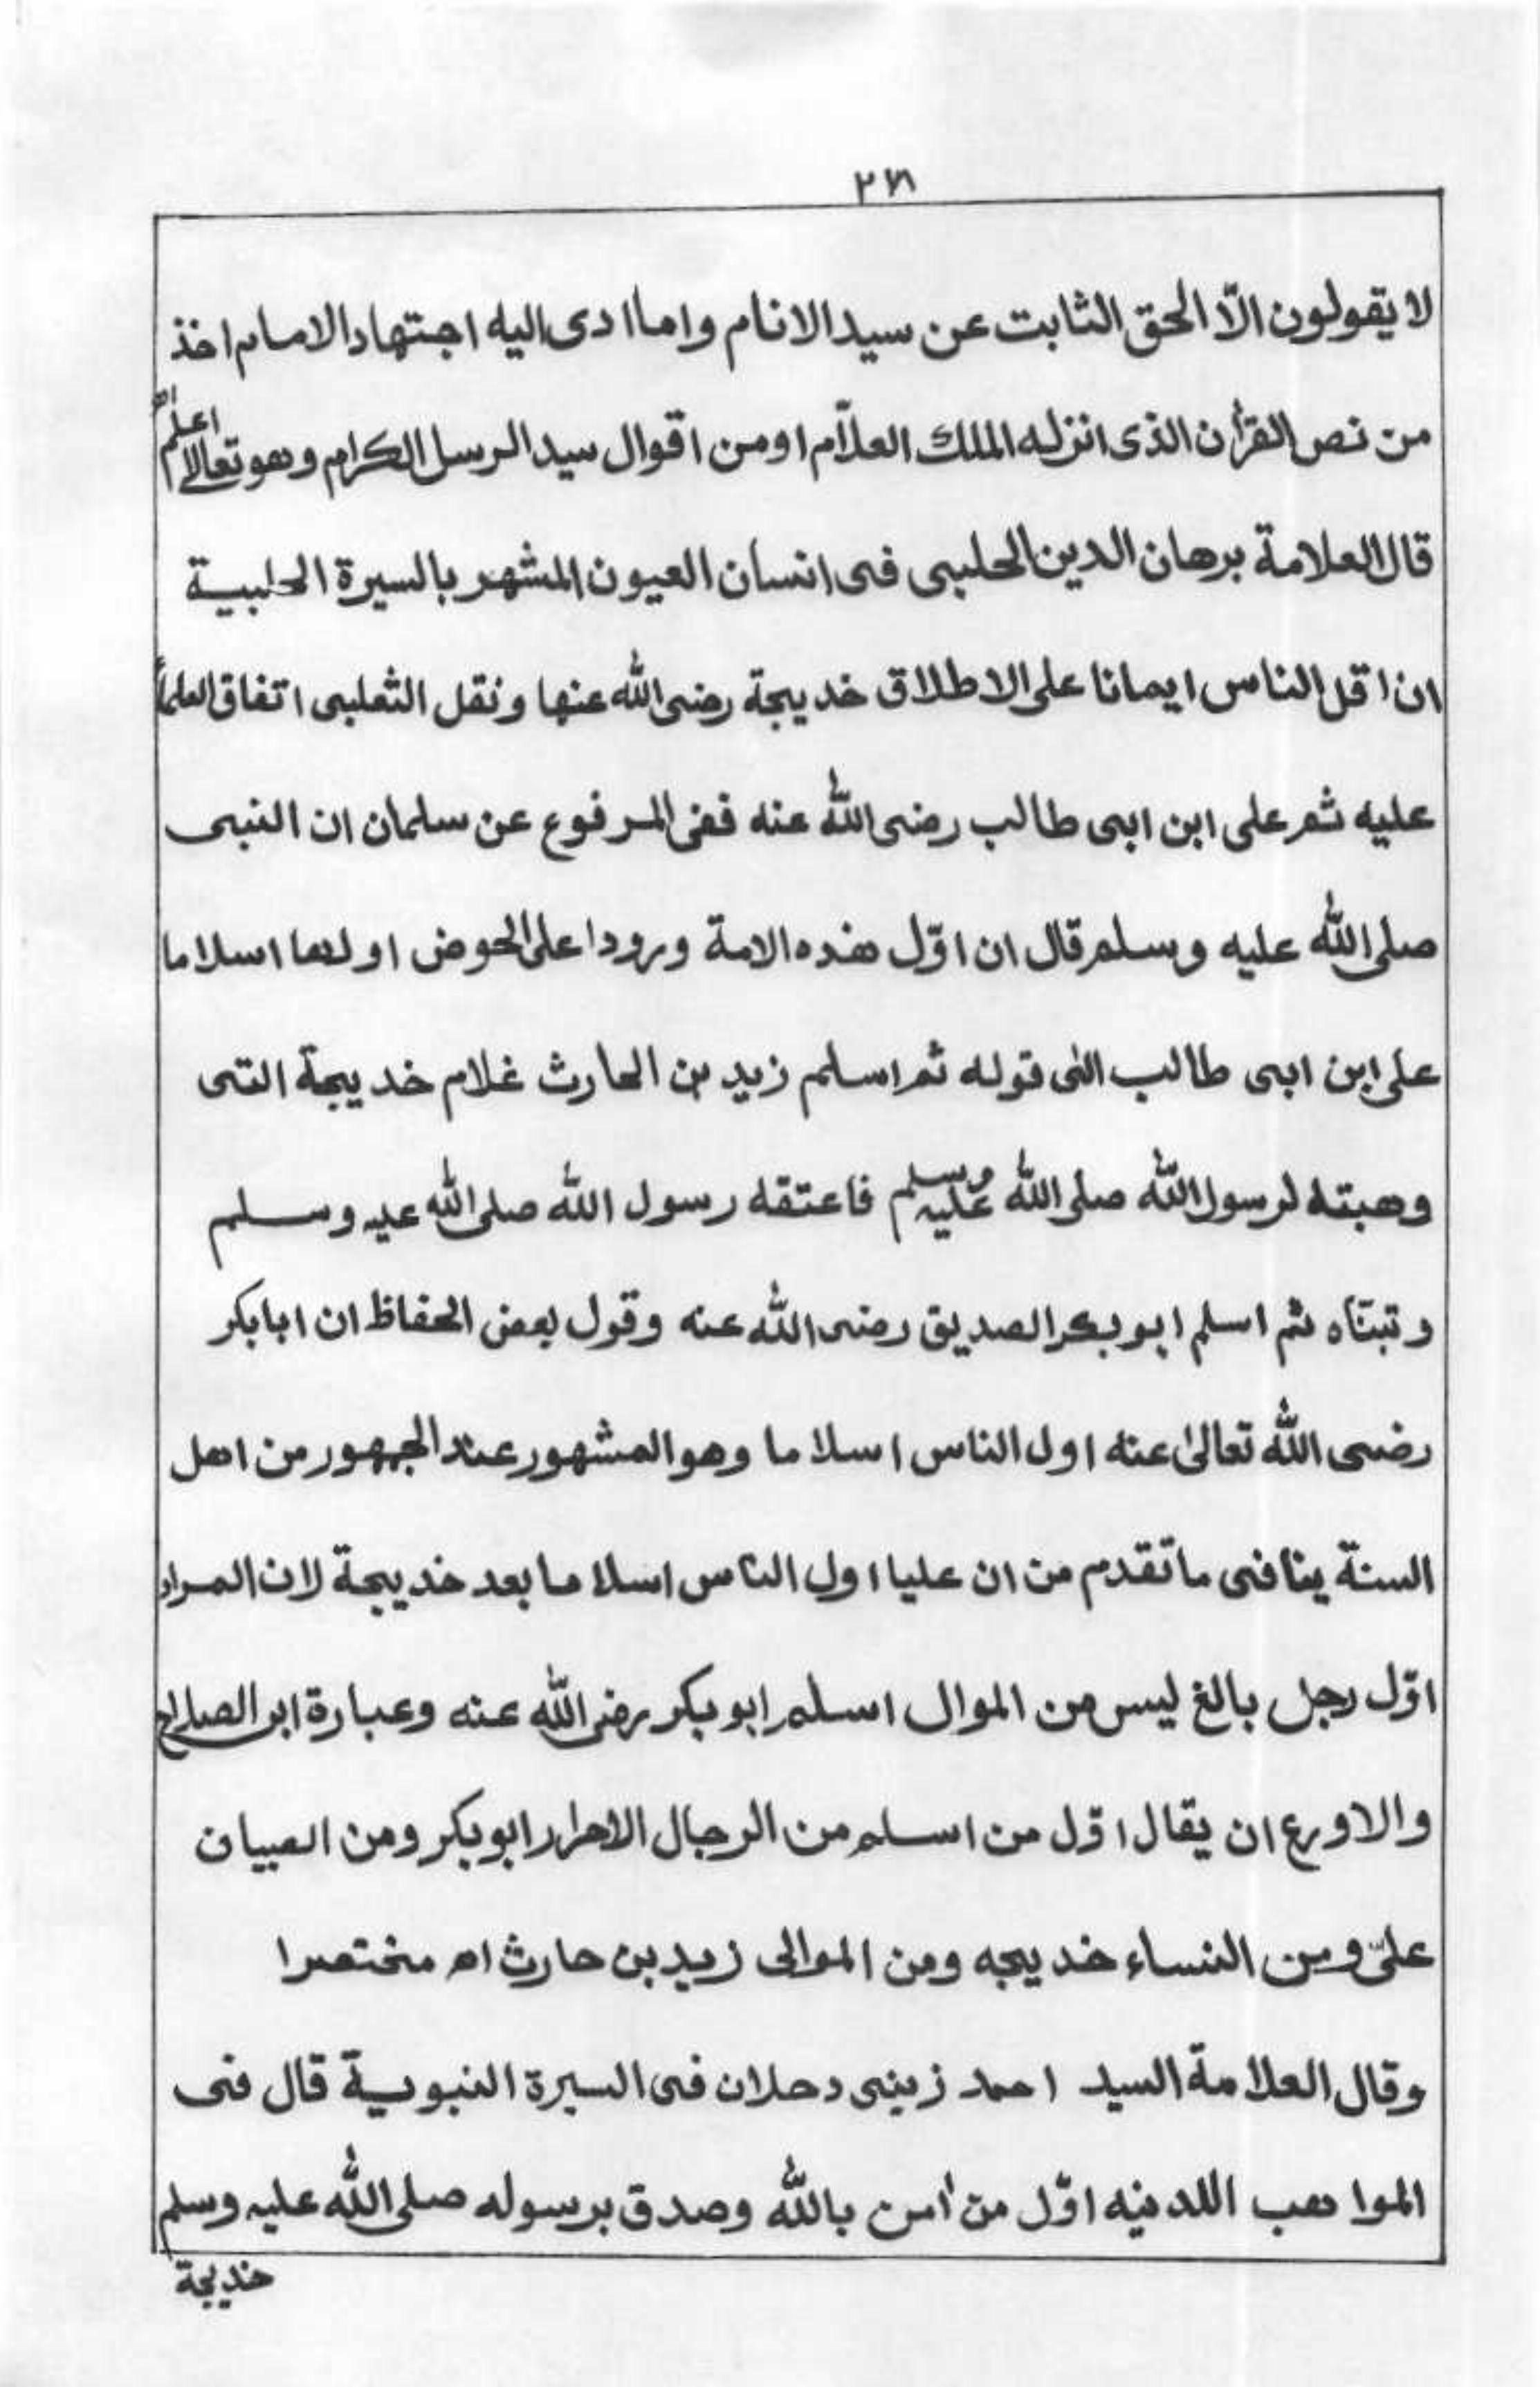 لا يقولون الّا الحق الثابت عن سيد الانام واما ادى اليه اجتهاد الامام اخذ
من نص القرأن الذى انزله الملك العلّام اومن اقوال سيد الرسل الكرام وهو تعالى اعلم
قال العلامة برهان الدين الحلبى فى انسان العيون المشهر بالسيرة الحلبية
ان اقل الناس ايمانا على الاطلاق خديجة رضى الله عنها ونقل الثعلبى اتفاق العلماً
عليه ثم على ابن ابى طالب رضى الله عنه ففى المرفوع عن سلمان ان النبى
صلى الله عليه وسلم قال ان اوّل هذه الامة ورودا على الحوض اولها اسلاما
على ابن ابى طالب الى قوله ثم اسلم زيد بن الحارث غلام خديجة التى
وهبته لرسول الله صلى الله عليه وسلم فاعتقه رسول الله صلى الله عليه وسلم
وتبنّاه ثم اسلم ابو بكر الصديق رضى الله عنه وقول بعض الحفاظ ان ابا بكر
رضى الله تعالىٰ عنه اول الناس اسلاما وهو المشهور عند الجمهور من اهل
السنة ينافى ما تقدم من ان عليا اول الناس اسلاما بعد خديجة لان المراد
اوّل رجل بالغ ليس من الموال اسلم ابو بكر رضى الله عنه وعبارة ابن الصلاح
والاورع ان يقال اوّل من اسلم من الرجال الاحرار ابو بكر ومن الصبيان
علىّ ومن النساء خديجه ومن الموالى زيد بن حارث اه مختصرا
وقال العلامة السيد احمد زينى دحلان فى السيرة النبوية قال فى
المواهب اللدنيه اوّل من اٰمن بالله وصدق برسوله صلى الله عليه وسلم
خديجة